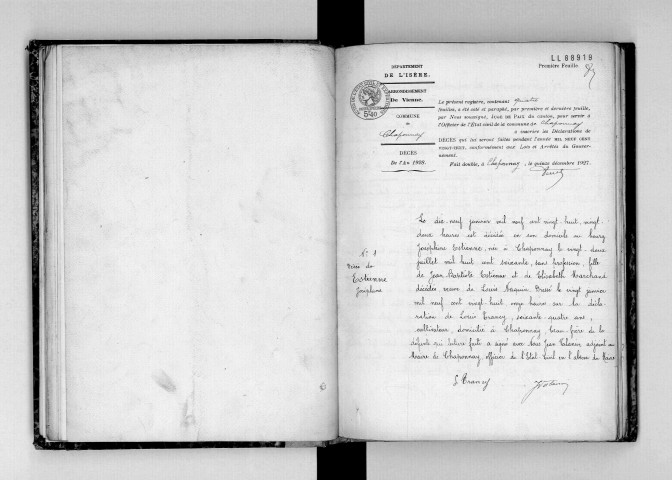 LL 88919
Première Feuille
DÉPARTEMENT
DE L'ISÈRE.
ARRONDISSEMENT
De Vienne.
COMMUNE
de
Chaponnay
DÉCÈS
De l'An 1928.
Le présent registre, contenant quatre
feuilles, a été coté et paraphé, par première et dernière feuille,
par Nous soussigné, JUGE DE PAIX du canton, pour servir à
l'Officier de l'État civil de la commune de Chaponnay
à inscrire les Déclarations de
DÉCÈS qui lui seront faites pendant l'année MIL NEUF CENT
VINGT-HUIT, conformément aux Lois et Arrêtés du Gouver-
nement.
Fait double, à Chaponnay, le quinze décembre 1927.
N° 1
Décès de
Estienne
Joséphine
Le dix neuf janvier mil neuf cent vingt-huit, vingt-
deux heures est décédée en son domicile au bourg
Joséphine Estienne, née à Chaponnay le vingt-deux
juillet mil huit cent soixante, sans profession, fille
de Jean Baptiste Estienne et de Elisabeth Marchand
décédés, veuve de Louis Naquin. Dressé le vingt janvier
mil neuf cent vingt-huit, onze heures sur la décla-
ration de Louis Trancy, soixante-quatre ans,
cultivateur, domicilié à Chaponnay, beau-frère de la
défunte qui lecture faite a signé avec Nous Jean adjoint au
Maire de Chaponnay, officier de l'Etat-Civil en l'absence du Maire
L Trancy